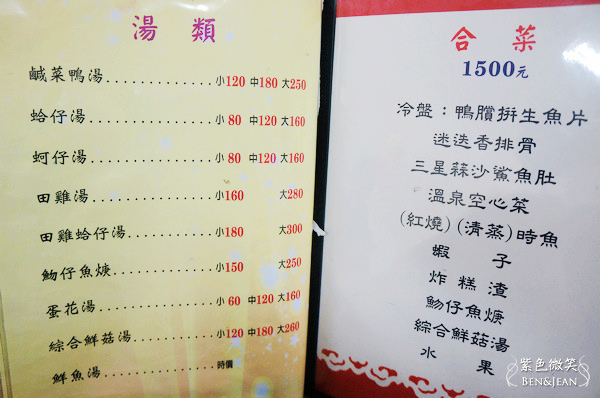 湯 類
鹹菜鴨湯............小120 中180 大250
蛤仔湯..............小 80 中120 大160
蚵仔湯..............小 80 中120 大160
田雞湯..............小160 大280
田雞蛤仔湯..........小180 大300
魩仔魚焿............小150 大250
蛋花湯..............小 60 中120 大160
綜合鮮菇湯..........小120 中180 大260
鮮魚湯..............時價
合 菜
1500元
冷盤：鴨臏拼生魚片
迷迭香排骨
三星蒜沙鯊魚肚
溫泉空心菜
(紅燒)(清蒸)時魚
蝦 子
炸糕渣
魩仔魚焿
綜合鮮菇湯
水 果
紫色微笑
BEN&JEAN